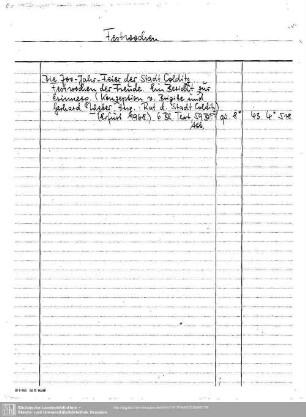 Festwochen
Die 700-Jahr-Feier der Stadt Colditz
Festwochen der Freude. Ein Bericht zur
Erinnerg. (Konzeption v. Brigitte und
Gerhard Hrsg. Rat d. Stadt Colditz)
(Erfurt 1968). 6 Bl. Text, 59 Bl. gr. 8° 43. 4° 548
Abb.
Sächsische Landesbibliothek -
Staats- und Universitätsbibliothek Dresden